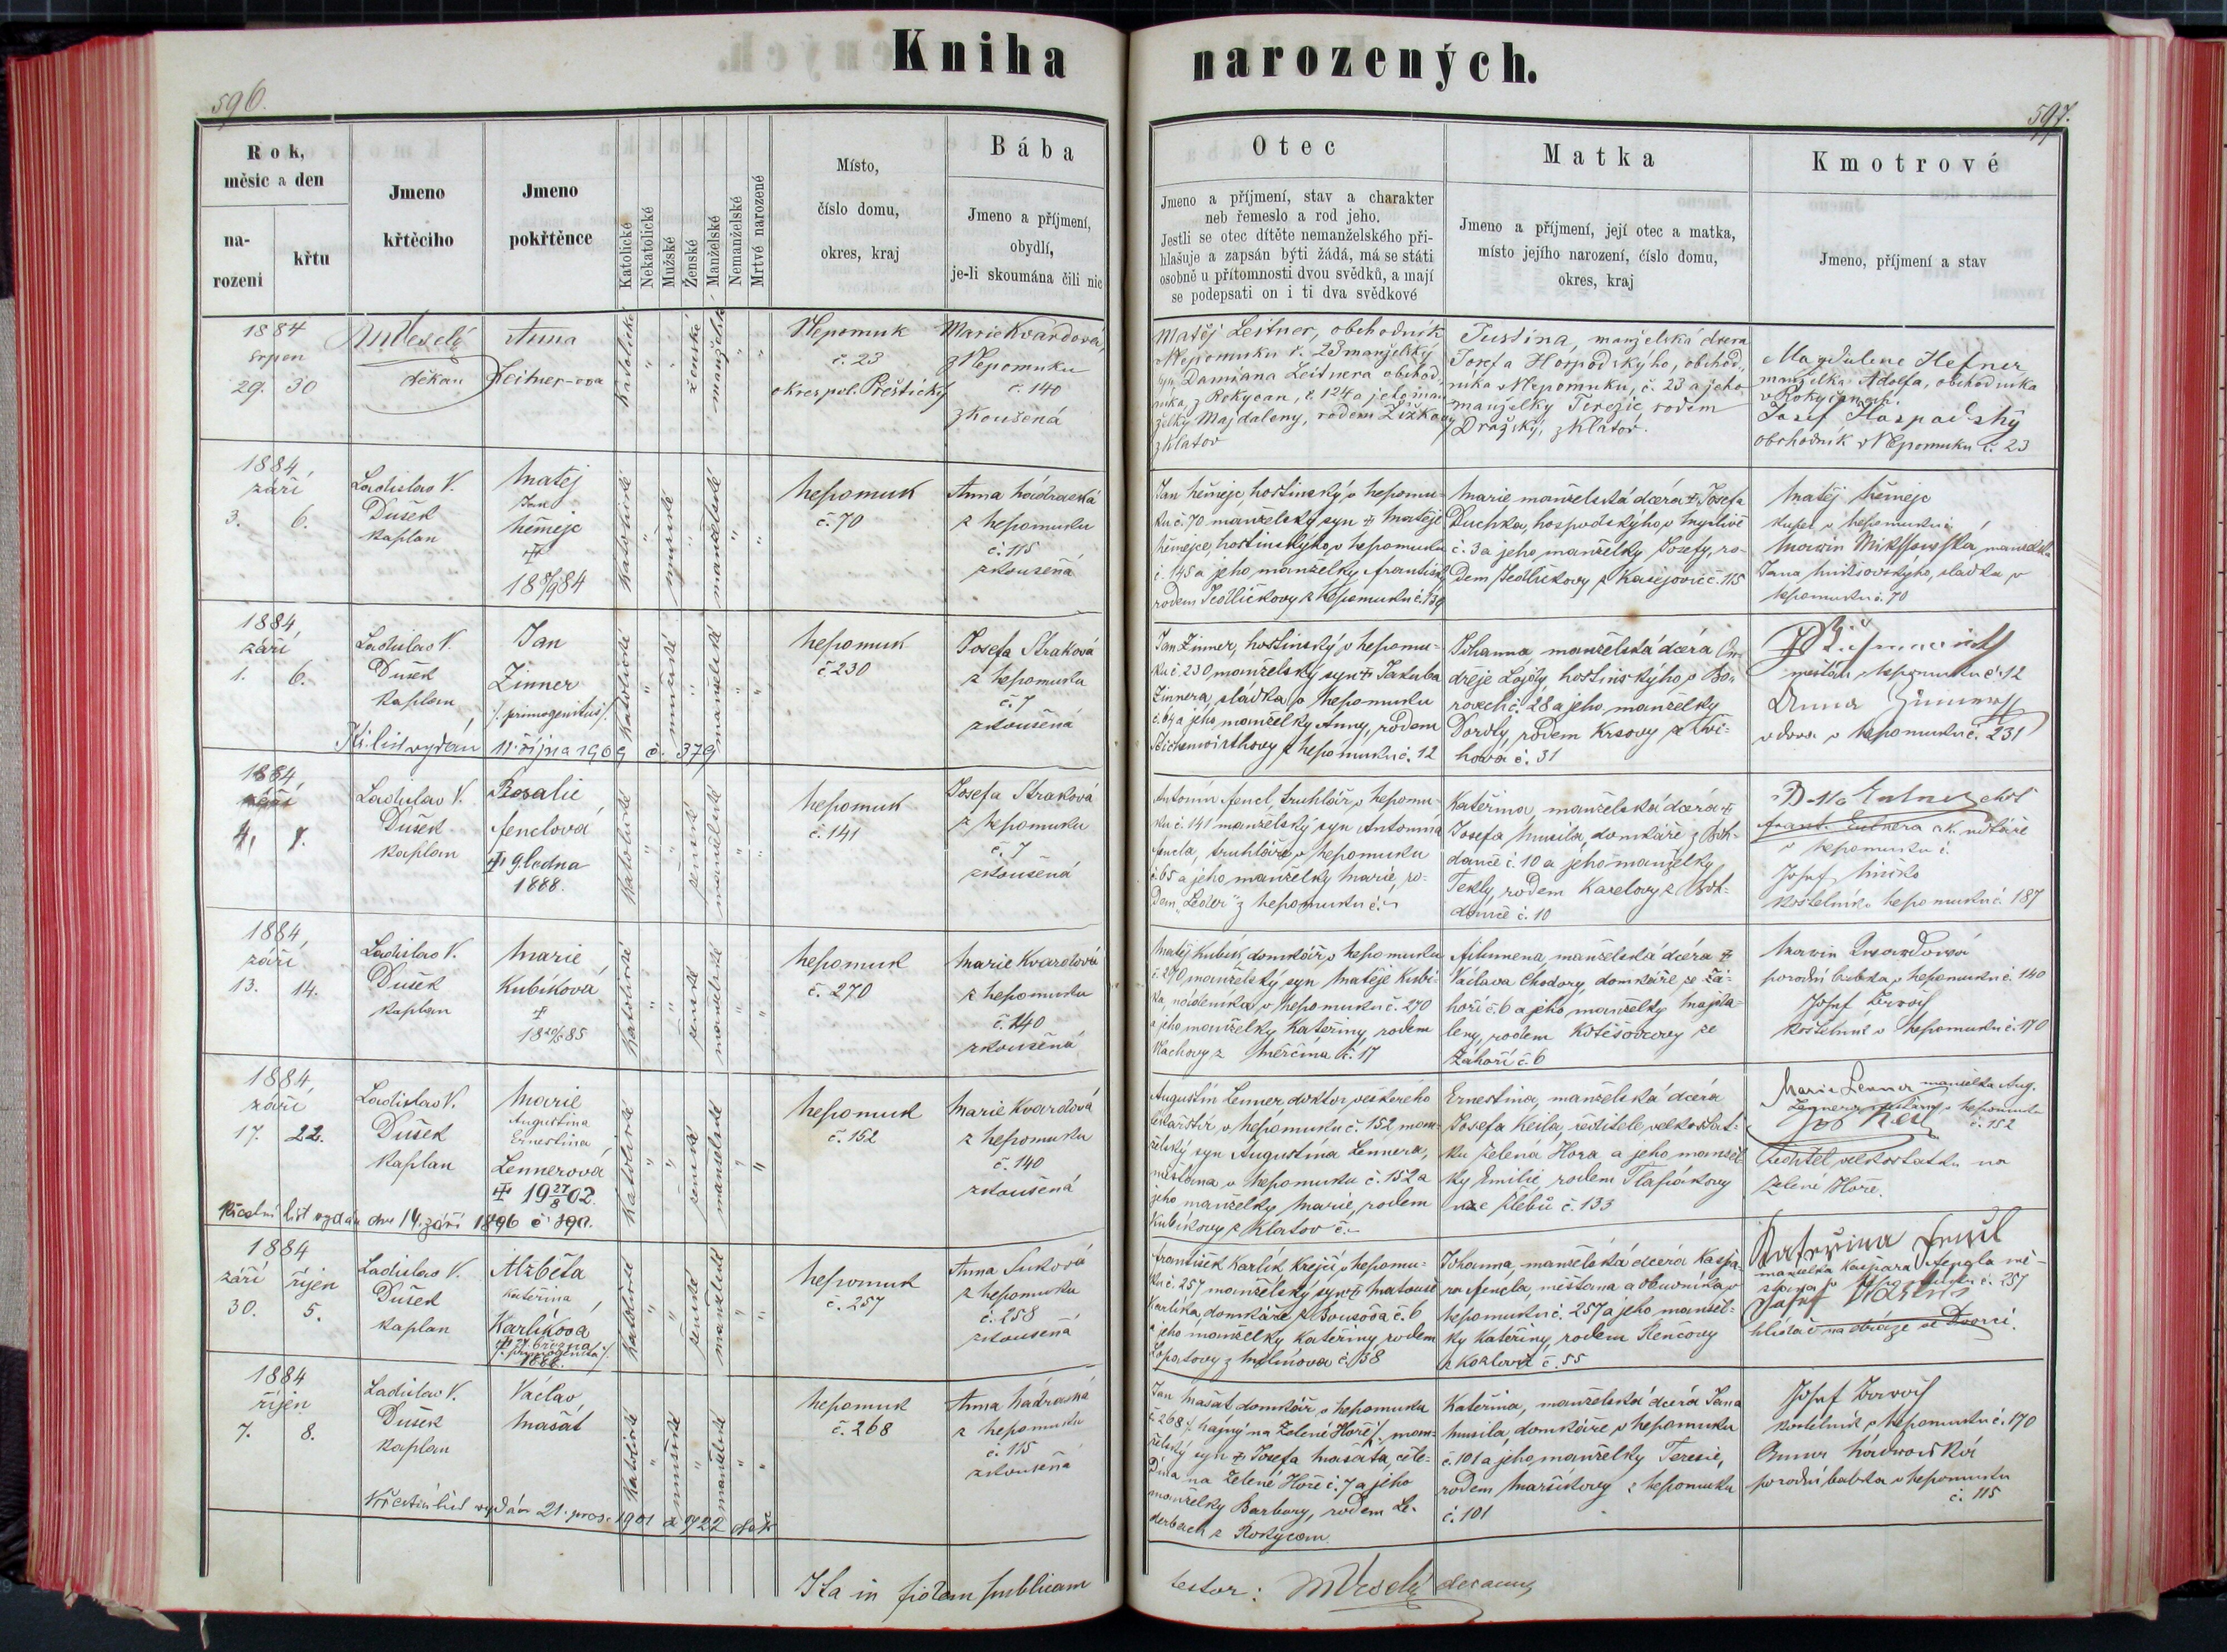 Kniha narozených.
596.
597.
Rok,
měsíc a den
na-
rození
křtu
Jmeno
křtěcího
Jmeno
pokřtěnce
Katolické
Nekatolické
Mužské
Ženské
Manželské
Nemanželské
Mrtvé narozené
Místo,
číslo domu,
okres, kraj
Bába
Jmeno a příjmení,
obydlí,
je-li skoumána čili nic
Otec
Jmeno a příjmení, stav a charakter
neb řemeslo a rod jeho.
Jestli se otec dítěte nemanželského při-
hlašuje a zapsán býti žádá, má se státi
osobně u přítomnosti dvou svědků, a mají
se podepsati on i ti dva svědkové
Matka
Jmeno a příjmení, její otec a matka,
místo jejího narození, číslo domu,
okres, kraj
Kmotrové
Jmeno, příjmení a stav
1884
srpen
29. 30
děkan
Anna
Leitner-ova
katolické
ženské
manželské
Nepomuk
č. 23
okres pol. Přeštický
Marie Kvardová,
z Nepomuku
č. 140
zkoušená
Matěj Leitner, obchodník
v Nepomuku č. 23 manželský
syn Damiana Leitnera obchod-
níka z Rokycan, č. 124 a jeho man-
želky Majdaleny, rodem Žižkovy
z Klatov
Justina, manželská dcera
Josefa Hospodského, obchod-
níka v Nepomuku, č. 23 a jeho
manželky Terezie rodem
Dražský, z Klatov.
Magdalene Hefner
manželka Adolfa, obchodníka
v Rokycanech.
Josef Hospodský
obchodník v Nepomuku č. 23
1884,
září
3. 6.
Ladislav V.
Dušek
kaplan
Matěj
Jan
Němejc
katolické
mužské
manželské
Nepomuk
č. 70
Anna Hádracká
z Nepomuku
č. 115
zkoušená
Jan Němejc, hostinský v Nepomu-
ku č. 70 manželský syn † Matěje
Němejce, hostinského v Nepomuku
č. 145 a jeho manželky Františky
rodem Jedličkovy z Nepomuku č. 139
Marie manželská dcera † Josefa
Duchka, hospodského v Myslívě
č. 3 a jeho manželky Josefy, ro-
dem Jedličkovy z Kasejovic č. 115
Matěj Němejc
kupec v Nepomuku č.
manželka
Jana sládka v
Nepomuku č. 70
1884
září
1. 6.
Ladislav V.
Dušek
kaplan
Jan
Zinner
/. primogenitus /.
katolické
mužské
manželské
Nepomuk
č 230
Josefa Straková
z Nepomuku
č. 7
zkoušená
Jan Zinner, hostinský v Nepomu-
ku č. 230 manželský syn † Jakuba
Zinnera, sládka v Nepomuku
č. 64 a jeho manželky Anny, rodem
z Nepomuku č. 12
Johanna manželská dcera On-
dřeje Lojdy hostinského v Bo-
rovech č. 28 a jeho manželky
Doroty, rodem Krsovy z
č. 31
měšťan v Nepomuku č. 12
Anna Zinner
vdova v Nepomuku č. 231
Kř. list vydán 11. října 1909 č. 379
1884,
září
4. 7.
Ladislav V.
Dušek
kaplan
Rosalie
Fenclová
† 9. ledna
1888.
katolické
ženské
manželské
Nepomuk
č. 141
Josefa Straková
z Nepomuku
č. 7
zkoušená
Antonín Fencl, truhlář v Nepomu-
ku č. 141 manželský syn Antonína
Fencla, truhláře v Nepomuku
č. 65 a jeho manželky Marie, ro-
dem "Leder" z Nepomuku č. –
Kateřina, manželská dcera †
Josefa Musila, domkáře z
č. 10 a jeho manželky
Tekly, rodem Karlovy z
č. 10
v Nepomuku č.
Josef
kostelník v Nepomuku č. 187
1884,
září
13. 14.
Ladislav V.
Dušek
kaplan
Marie
Kubíková
†
katolické
ženské
manželské
Nepomuk
č. 270
Marie Kvardová
z Nepomuku
č. 140
zkoušená
Matěj Kubík, domkář v Nepomuku
č. 270 manželský syn Matěje Kubí-
ka v Nepomuku č. 270
a jeho manželky Kateřiny rodem
Vlachovy z Měčína č. 17
Filumena manželská dcera †
Václava Chodory, domkáře ze Zá-
hoří č. 6 a jeho manželky Majda-
leny, rodem Kotěšovcovy ze
Záhoří č. 6
porodní babka v Nepomuku č. 140
Josef
kostelník v Nepomuku č. 170
1884,
září
17. 22.
Ladislav V.
Dušek
kaplan
Marie
Augustina
Ernestina
Lennerová
† 19 27/8 02.
katolické
ženské
manželské
Nepomuk
č. 152
Marie Kvardová
z Nepomuku
č. 140
zkoušená
Augustin Lenner, doktor veškerého
lékařství v Nepomuku č. 152 man-
želský syn Augustína Lennera,
měšťana v Nepomuku č. 152 a
jeho manželky Marie, rodem
Kubíkovy z Klatov č. –
Ernestina, manželská dcera
Josefa Keila, ředitele velkostat-
ku Zelená Hora a jeho manžel-
ky Emilie, rodem Tlapákovy
č. 133
Marie Lenner manželka Aug.
Lennera měšťana v Nepomuku
č. 152
Jos Keil
ředitel velkostatku na
Zelené Hoře.
Křestní list vydán dne 14. září 1896 č. 190.
1884
září říjen
30. 5.
Ladislav V.
Dušek
kaplan
Alžběta
Kateřina
Karlíková
/. primogenita /.
katolické
ženské
manželské
Nepomuk
č. 257
Anna Suková
z Nepomuku
č. 258
zkoušená
František Karlík, krejčí v Nepomu-
ku č. 257 manželský syn † Matouše
Karlíka, domkáře z Bousova č. 6
a jeho manželky Kateřiny, rodem
Lopatovy z Mileňova č. 38
Johanna, manželská dcera Kašpa-
ra Fencla, měšťana a obuvníka v
Nepomuku č. 257 a jeho manžel-
ky Kateřiny, rodem Stenčovy
z Kozlovic č. 55
Kateřina Fencl
manželka Kašpara Fencla mě-
šťana v Nepomuku č. 257
Josef
hlídač na dráze ve Dvorci.
1884
říjen
7. 8.
Ladislav V.
Dušek
kaplan
Václav
Mašát
katolické
mužské
manželské
Nepomuk
č. 268
Anna Hádracká
z Nepomuku
č. 115
zkoušená
Jan Mašát domkář v Nepomuku
č. 268 /. hajný na Zelené Hoře /. man-
želský syn † Josefa Mašáta, čele-
dína na Zelené Hoře č. 7 a jeho
manželky Barbory, rodem Le-
derbach z Rokycan
Kateřina, manželská dcera Jana
Musila, domkáře v Nepomuku
č. 101 a jeho manželky Terezie,
rodem Maršíkovy z Nepomuku
č. 101
Josef
kostelník v Nepomuku č. 170
Anna Hádracká
porodní babka v Nepomuku
č. 115
Křestní list vydán 21. pros. 1901
Ita in fidem publicam
testor: decanus